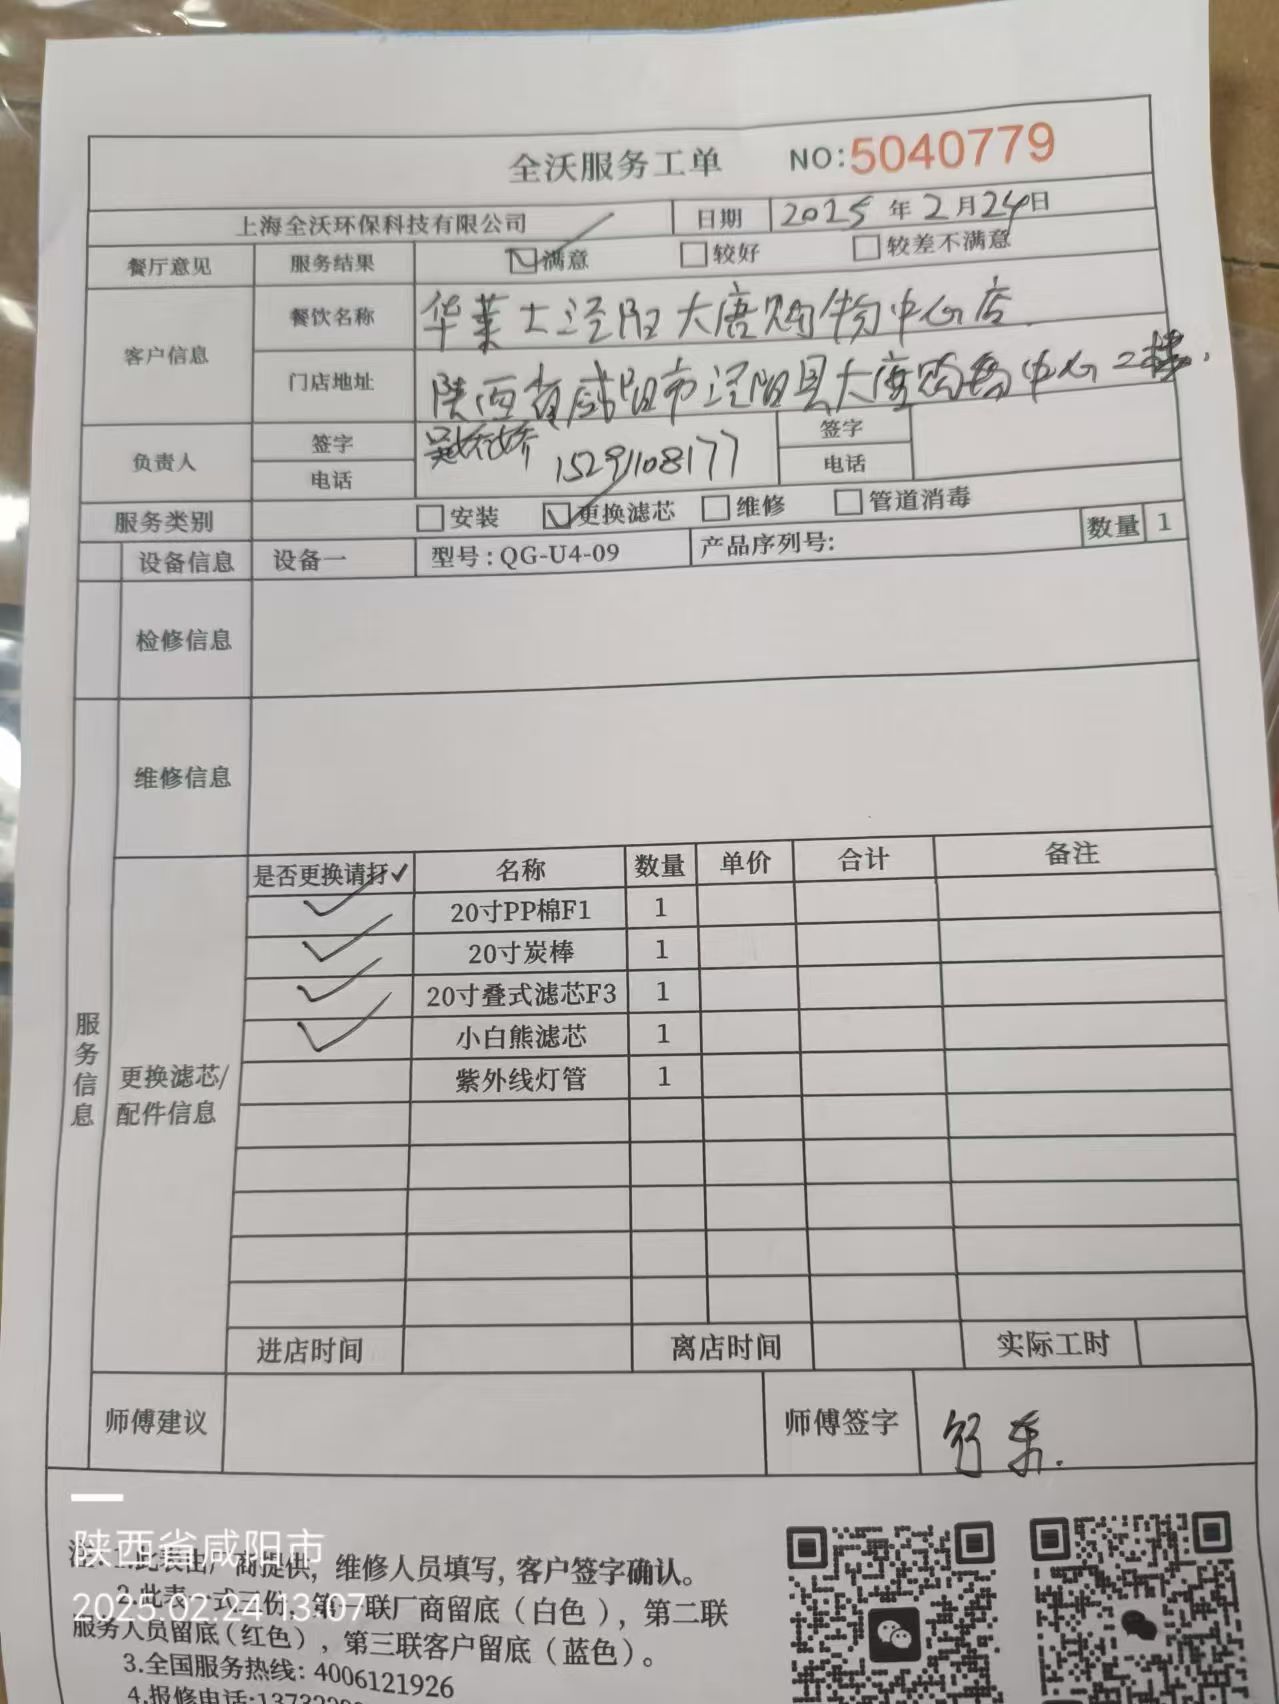 全沃服务工单 NO:5040779
上海全沃环保科技有限公司 日期 2025 年 2 月 24 日
餐厅意见 服务结果 ☑满意 □较好 □较差不满意
客户信息 餐饮名称 华莱士泾阳大唐购物中心店
门店地址 陕西省咸阳市泾阳县大唐购物中心2楼.
负责人 签字 签字
电话 15291108177 电话
服务类别 □安装 ☑更换滤芯 □维修 □管道消毒
设备信息 设备一 型号:QG-U4-09 产品序列号: 数量 1
检修信息
维修信息
服务信息
更换滤芯/
配件信息
是否更换请打✓ 名称 数量 单价 合计 备注
✓ 20寸PP棉F1 1
✓ 20寸炭棒 1
✓ 20寸叠式滤芯F3 1
✓ 小白熊滤芯 1
紫外线灯管 1
进店时间 离店时间 实际工时
师傅建议 师傅签字
注 1.此表由厂商提供,维修人员填写,客户签字确认。
2.此表一式三份,第一联厂商留底(白色),第二联
服务人员留底(红色),第三联客户留底(蓝色)。
3.全国服务热线:4006121926
4.报修电话:13732
陕西省咸阳市
2025.02.24 13:07